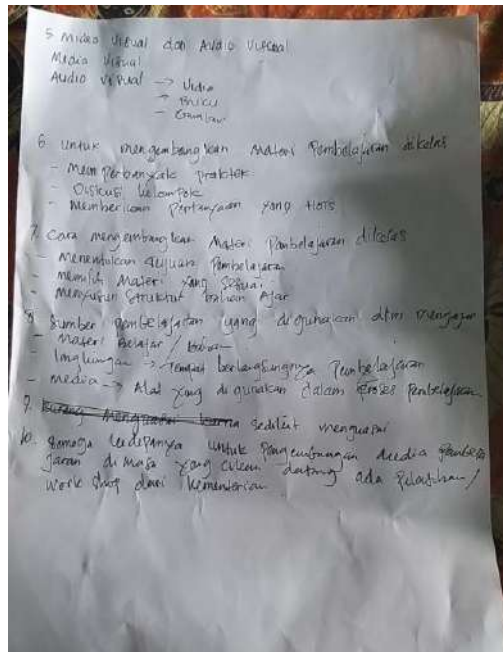 5 Midea Visual dan Audio Visual
Media Visual
Audio Visual → Vidio
→ Buku
- Gambar
6 Untuk mengembangkan Materi Pembelajaran dikelas
- Memperbanyak praktek
- Diskusi kelompok
- Memberikan Pertanyaan yang Hots
7. Cara mengembangkan Materi Pembelajaran dikelas
- Menentukan tujuan Pembelajaran
- memilih Materi yang sesuai
- Menyusun Struktur bahan Ajar
8. Sumber pembelajaran yang digunakan dlm mengajar
- Materi Belajar / bahan
- lingkungan → Tempat berlangsungnya Pembelajaran
- media → Alat yang digunakan dalam proses Pembelajaran
9. Kurang menguasai karna sedikit menguasai
10. Semoga kedepanya untuk Pengembangan media Pembela
jaran di masa yang akan datang ada Pelatihan /
work shop dari kementerian